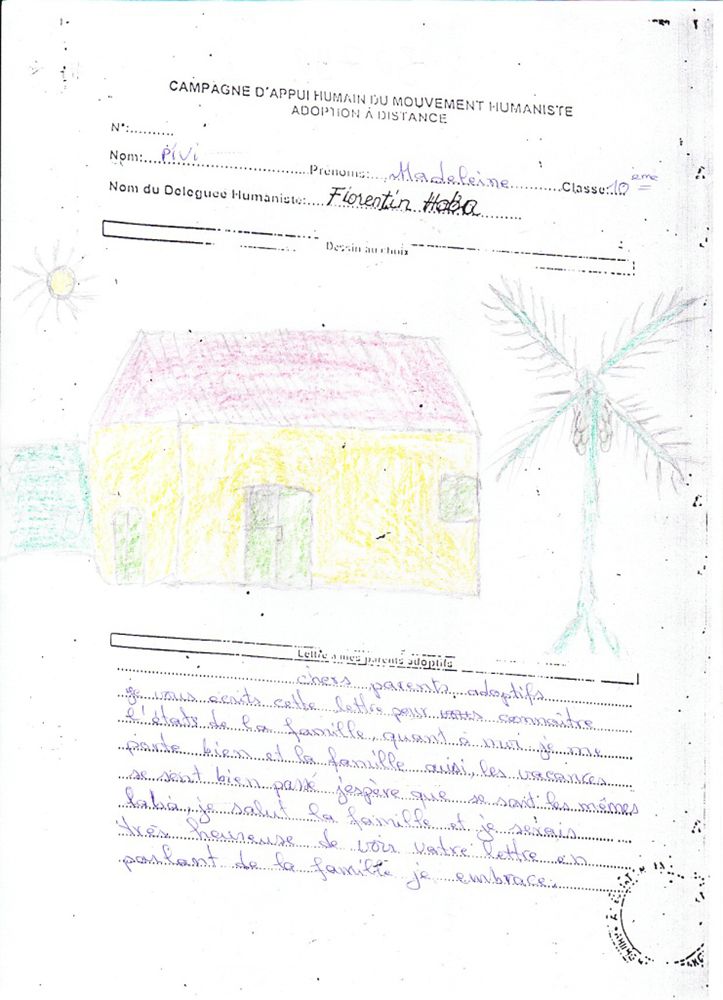 CAMPAGNE D'APPUI HUMAIN DU MOUVEMENT HUMANISTE
ADOPTION À DISTANCE
N°:..........
Nom:....Pivi..................Prénoms:...Madeleine..........Classe:10ème
Nom du Deleguée Humaniste:....Florentin Haba........
Dessin au choix
Lettre à mes parents adoptifs
chers parents adoptifs
je vous écrits cette lettre pour connaître
l'états de la famille, quant à moi je me
porte bien et la famille ausi, les vacances
se sont bien passé j'espère que se sont les mêmes
laba, je salut la famille et je serais
très heureuse de voir votre lettre en
parlant de la famille je embrace.